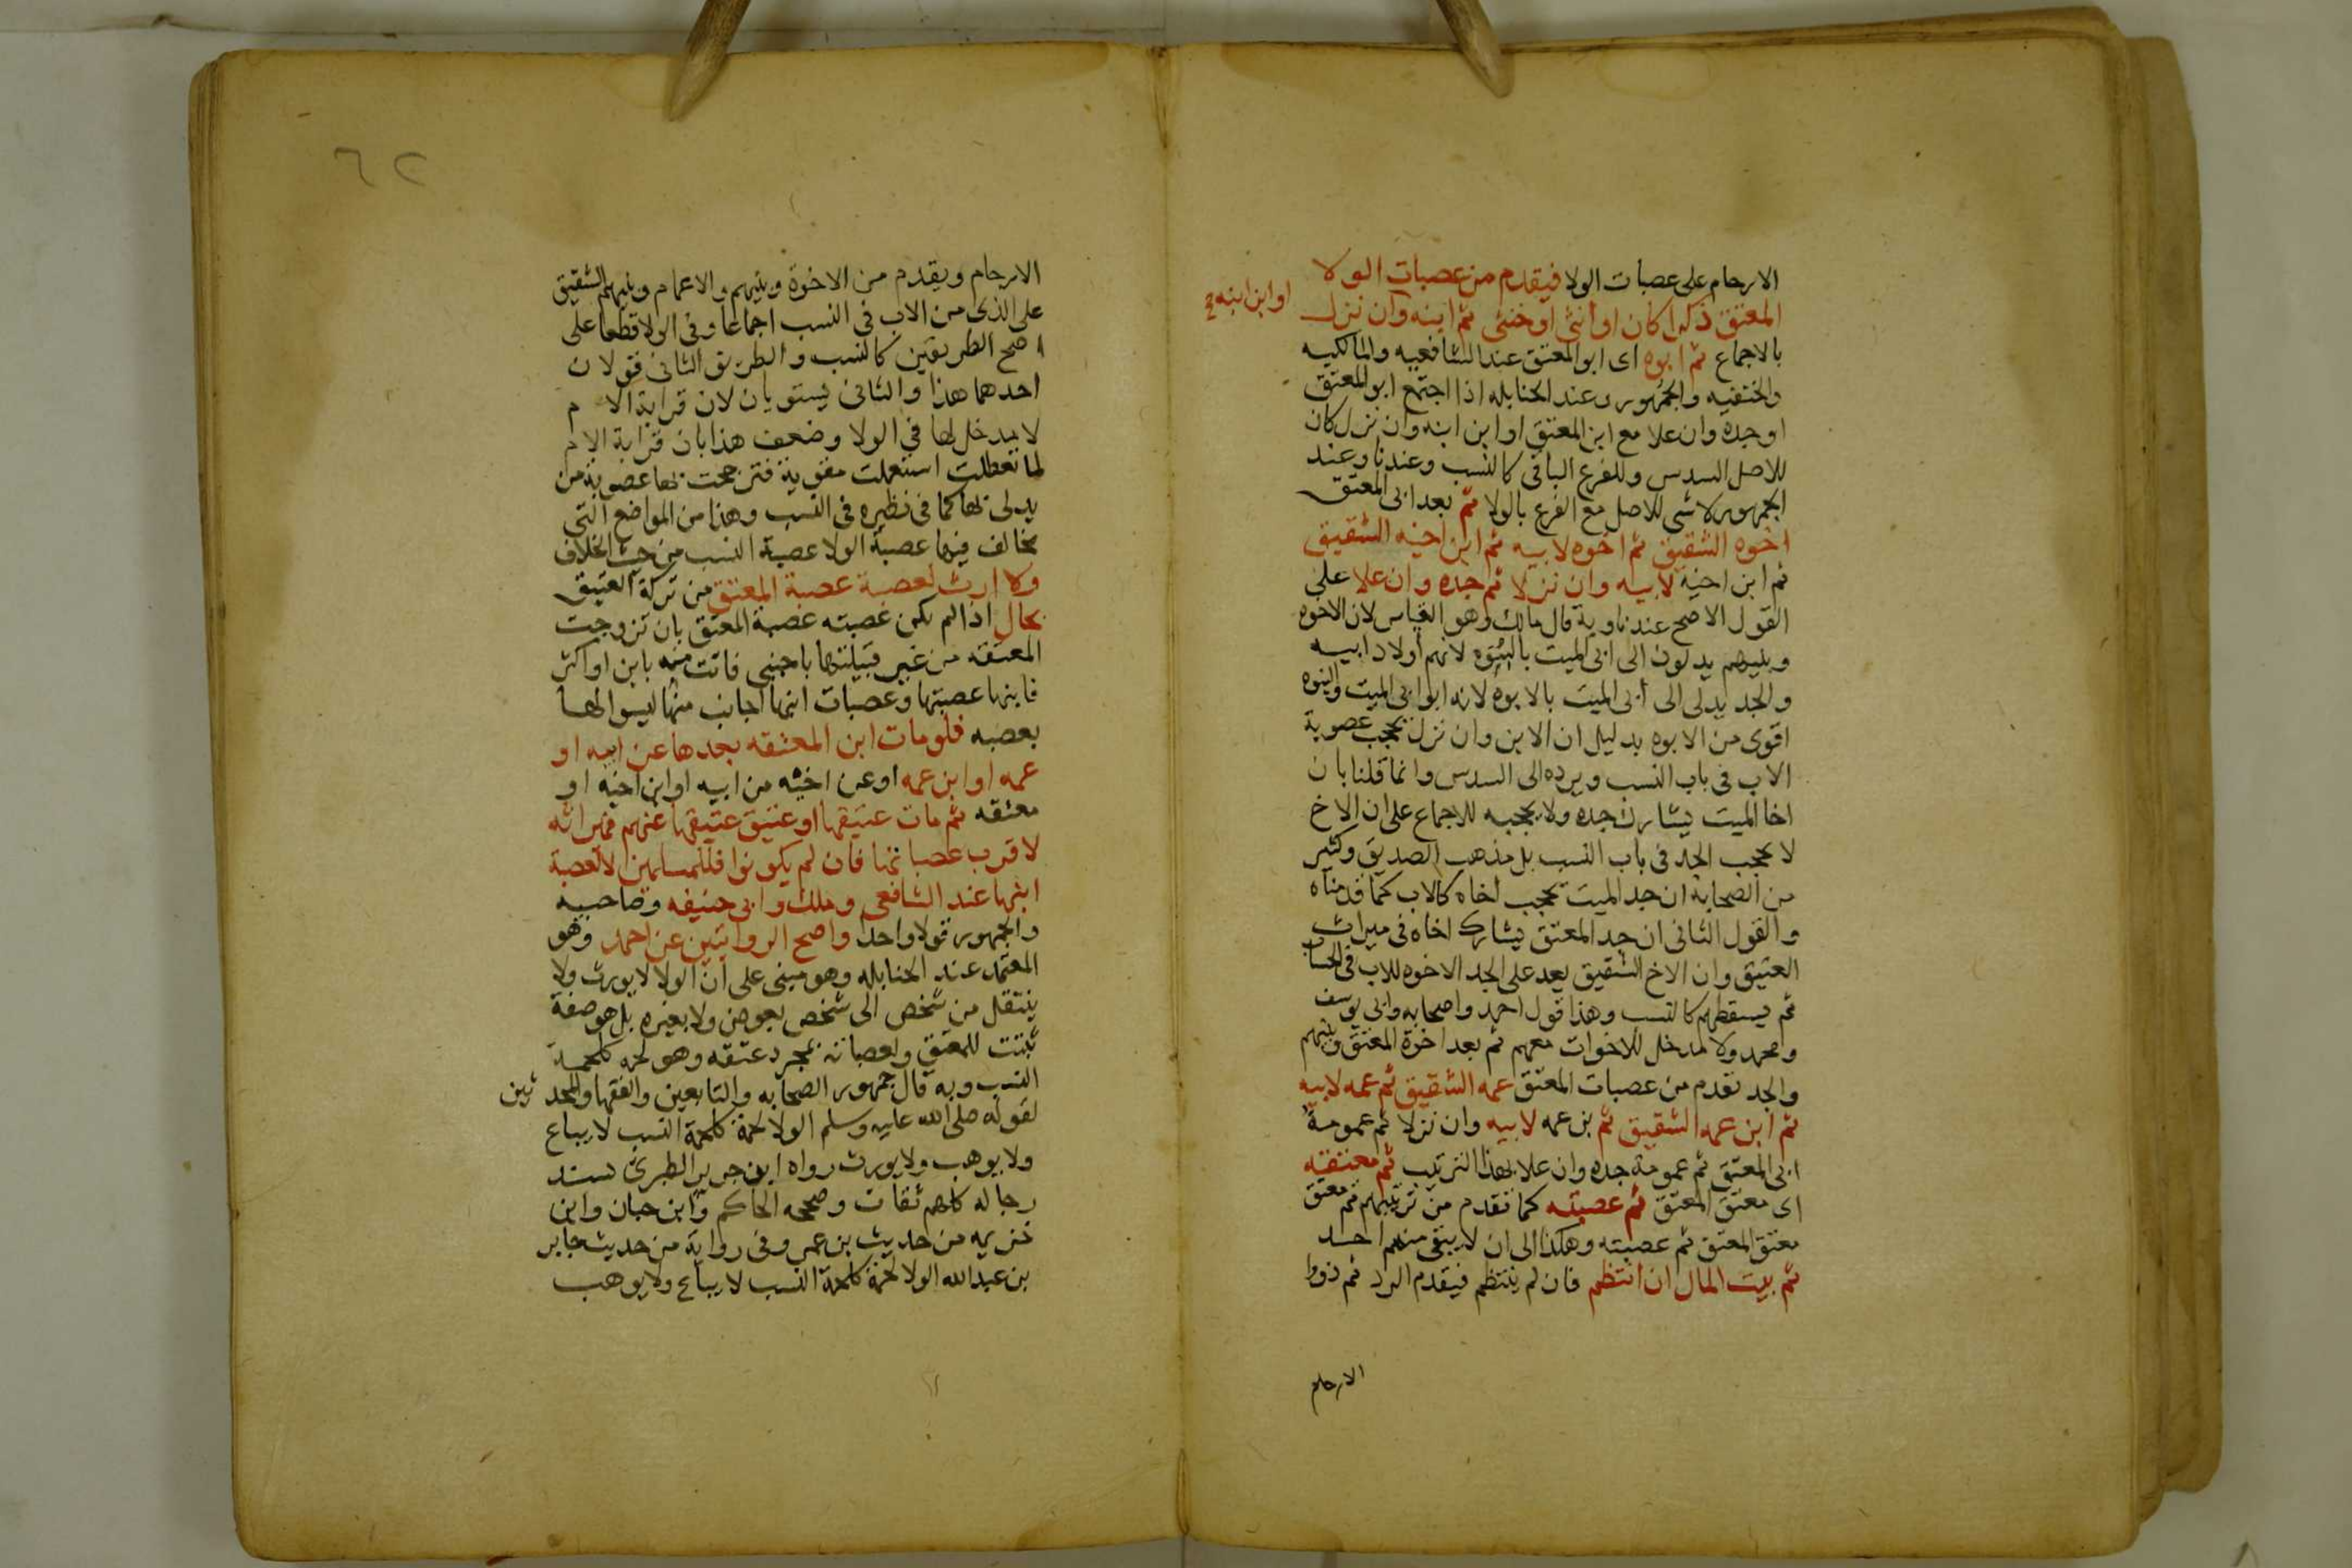 الارحام على عصبات الولا فيقدم من عصبات الولا
المعتق ذكرا كان او انثى او خنثى ثم ابنه وان نزل
او ابن ابنه
بالاجماع ثم ابوه اى ابو المعتق عند الشافعيه والمالكيه
والحنفيه والجمهور وعند الحنابله اذا اجتمع ابو المعتق
او جده وان علا مع ابن المعتق او ابن ابنه وان نزل كان
للاصل السدس وللفرع الباقى كالنسب وعندنا وعند
الجمهور لا شى للاصل مع الفرع بالولا ثم بعد ابى المعتق
اخوه الشقيق ثم اخوه لابيه ثم ابن اخيه الشقيق
ثم ابن اخيه لابيه وان نزلا ثم جده وان علا على
القول الاصح عندنا وبه قال مالك وهو القياس لان الاخوه
وبنيهم يدلون الى ابى الميت بالبنوه لانهم اولاد ابيه
والجد يدلى الى ابى الميت بالابوه لانه ابو ابى الميت والبنوه
اقوى من الابوه بدليل ان الابن وان نزل يحجب عصوبة
الاب فى باب النسب ويرده الى السدس وانما قلنا بان
اخا الميت يشارك جده ولا يحجبه للاجماع على ان الاخ
لا يحجب الجد فى باب النسب بل مذهب الصديق وكثير
من الصحابة ان جد الميت يحجب اخاه كالاب كما قدمناه
والقول الثانى ان جد المعتق يشارك اخاه فى ميراث
العتيق وان الاخ الشقيق يعد على الجد الاخوه للاب فى الحساب
ثم يسقطهم كالنسب وهذا قول احمد واصحابه وابى يوسف
ومحمد ولا مدخل للاخوات معهم ثم بعد اخوة المعتق وبنيهم
والجد تقدم من عصبات المعتق عمه الشقيق ثم عمه لابيه
ثم ابن عمه الشقيق ثم بن عمه لابيه وان نزلا ثم عمومة
ابى المعتق ثم عمومة جده وان علا بهذا الترتيب ثم معتقه
اى معتق المعتق ثم عصبته كما تقدم من ترتيبهم ثم معتق
معتق المعتق ثم عصبته وهكذا الى ان لا يبقى منهم احد
ثم بيت المال ان انتظم فان لم ينتظم فيقدم الرد ثم ذووا
الارحام
٦٢
الارحام ويقدم من الاخوة وبنيهم والاعمام وبنيهم الشقيق
على الذى من الاب فى النسب اجماعا وفى الولا قطعا على
اصح الطريقين كالنسب والطريق الثانى قولان
احدهما هذا والثانى يستويان لان قرابة الام
لا مدخل لها فى الولا وضعف هذا بان قرابة الام
لما تعطلت استعملت مقوية فترجحت بها عصوبة من
يدلى بها كما فى نظيره فى النسب وهذا من المواضع التى
يخالف فيها عصبة الولا عصبة النسب من حيث الخلاف
ولا ارث لعصبة عصبة المعتق من تركة العتيق
بحال اذا لم يكن عصبته عصبة المعتق بان تزوجت
المعتقه من غير قبيلتها باجنبى فاتت منه بابن او اكثر
فابنها عصبتها وعصبات ابنها اجانب منها ليسوا لها
بعصبه فلو مات ابن المعتقه بعدها عن ابيه او
عمه او ابن عمه او عن اخيه من ابيه او ابن اخيه او
معتقه ثم مات عتيقها او عتيق عتيقها عنهم فميراثه
لاقرب عصباتها فان لم يكونوا فللمسلمين لا لعصبة
ابنها عند الشافعى وملك وابى حنيفه وصاحبيه
والجمهور قولا واحدا واصح الروايتين عن احمد وهو
المعتمد عند الحنابله وهو مبنى على ان الولا لا يورث ولا
ينتقل من شخص الى شخص بعوض ولا بغيره بل هو صفة
تثبت للمعتق ولعصباته بمجرد عتقه وهو لحمه كلحمة
النسب وبه قال جمهور الصحابه والتابعين والفقها والمحد ثين
لقوله صلى الله عليه وسلم الولا لحمة كلحمة النسب لا يباع
ولا يوهب ولا يورث رواه ابن جرير الطبرى بسند
رجاله كلهم ثقات وصححه الحاكم وابن حبان وابن
خزيمه من حديث بن عمر وفى رواية من حديث جابر
بن عبد الله الولا لحمة كلحمة النسب لا يباع ولا يوهب